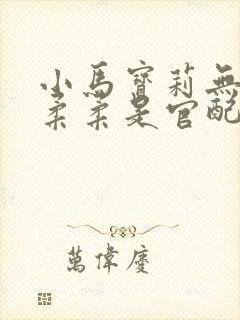 小馬寶莉無
柔柔是官配
萬偉慶